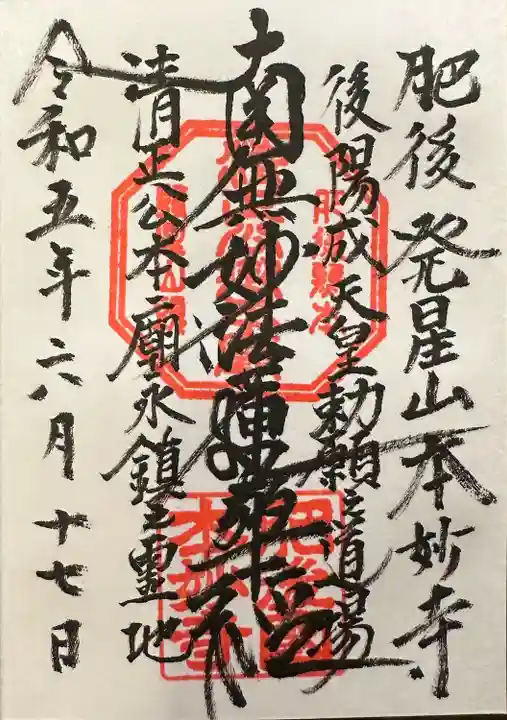 肥後 発星山本妙寺
後陽成天皇勅願之道場
南無妙法蓮華経
清正公本廟永鎮之霊地
令和五年六月十七日
肥後
本妙寺